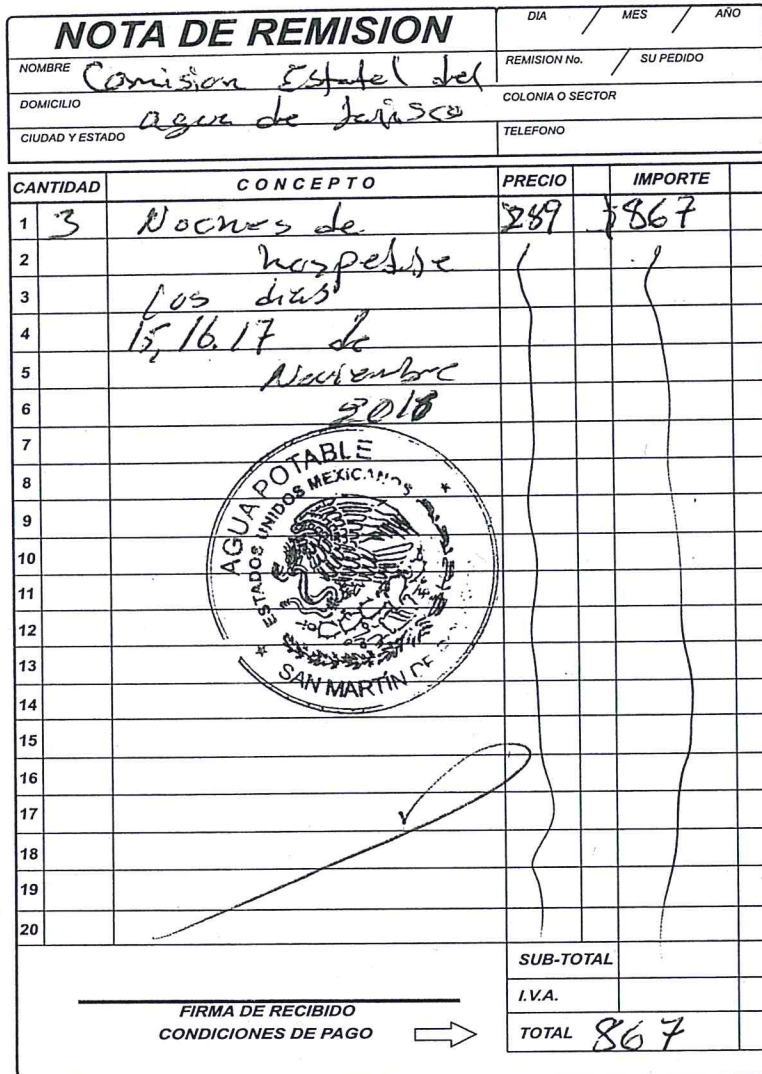 NOTA DE REMISION
DIA / MES / AÑO
NOMBRE Comision Estatel del
REMISION No. / SU PEDIDO
DOMICILIO agua de Jalisco
COLONIA O SECTOR
CIUDAD Y ESTADO
TELEFONO
CANTIDAD CONCEPTO PRECIO IMPORTE
1 3 Noches de 289 $867
2 hospedaje
3 Los dias
4 15, 16. 17 de
5 Noviembre
6 2018
7
8
9
10
11
12
13
14
15
16
17
18
19
20
AGUA POTABLE
ESTADOS UNIDOS MEXICANOS
SAN MARTÍN DE
SUB-TOTAL
I.V.A.
FIRMA DE RECIBIDO
CONDICIONES DE PAGO
TOTAL 867